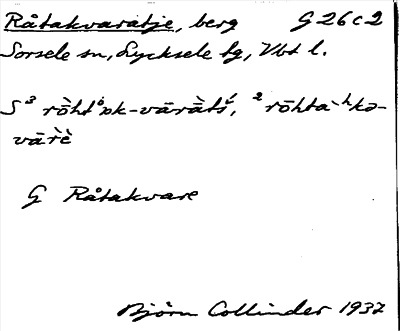 Råtakvaratje, berg G 26 c 2
Sorsele sn, Lycksele lg, Vbt l.
S ³ ròht
²rōhta-
vārè
G Råtakvare
Björn Collinder 1937